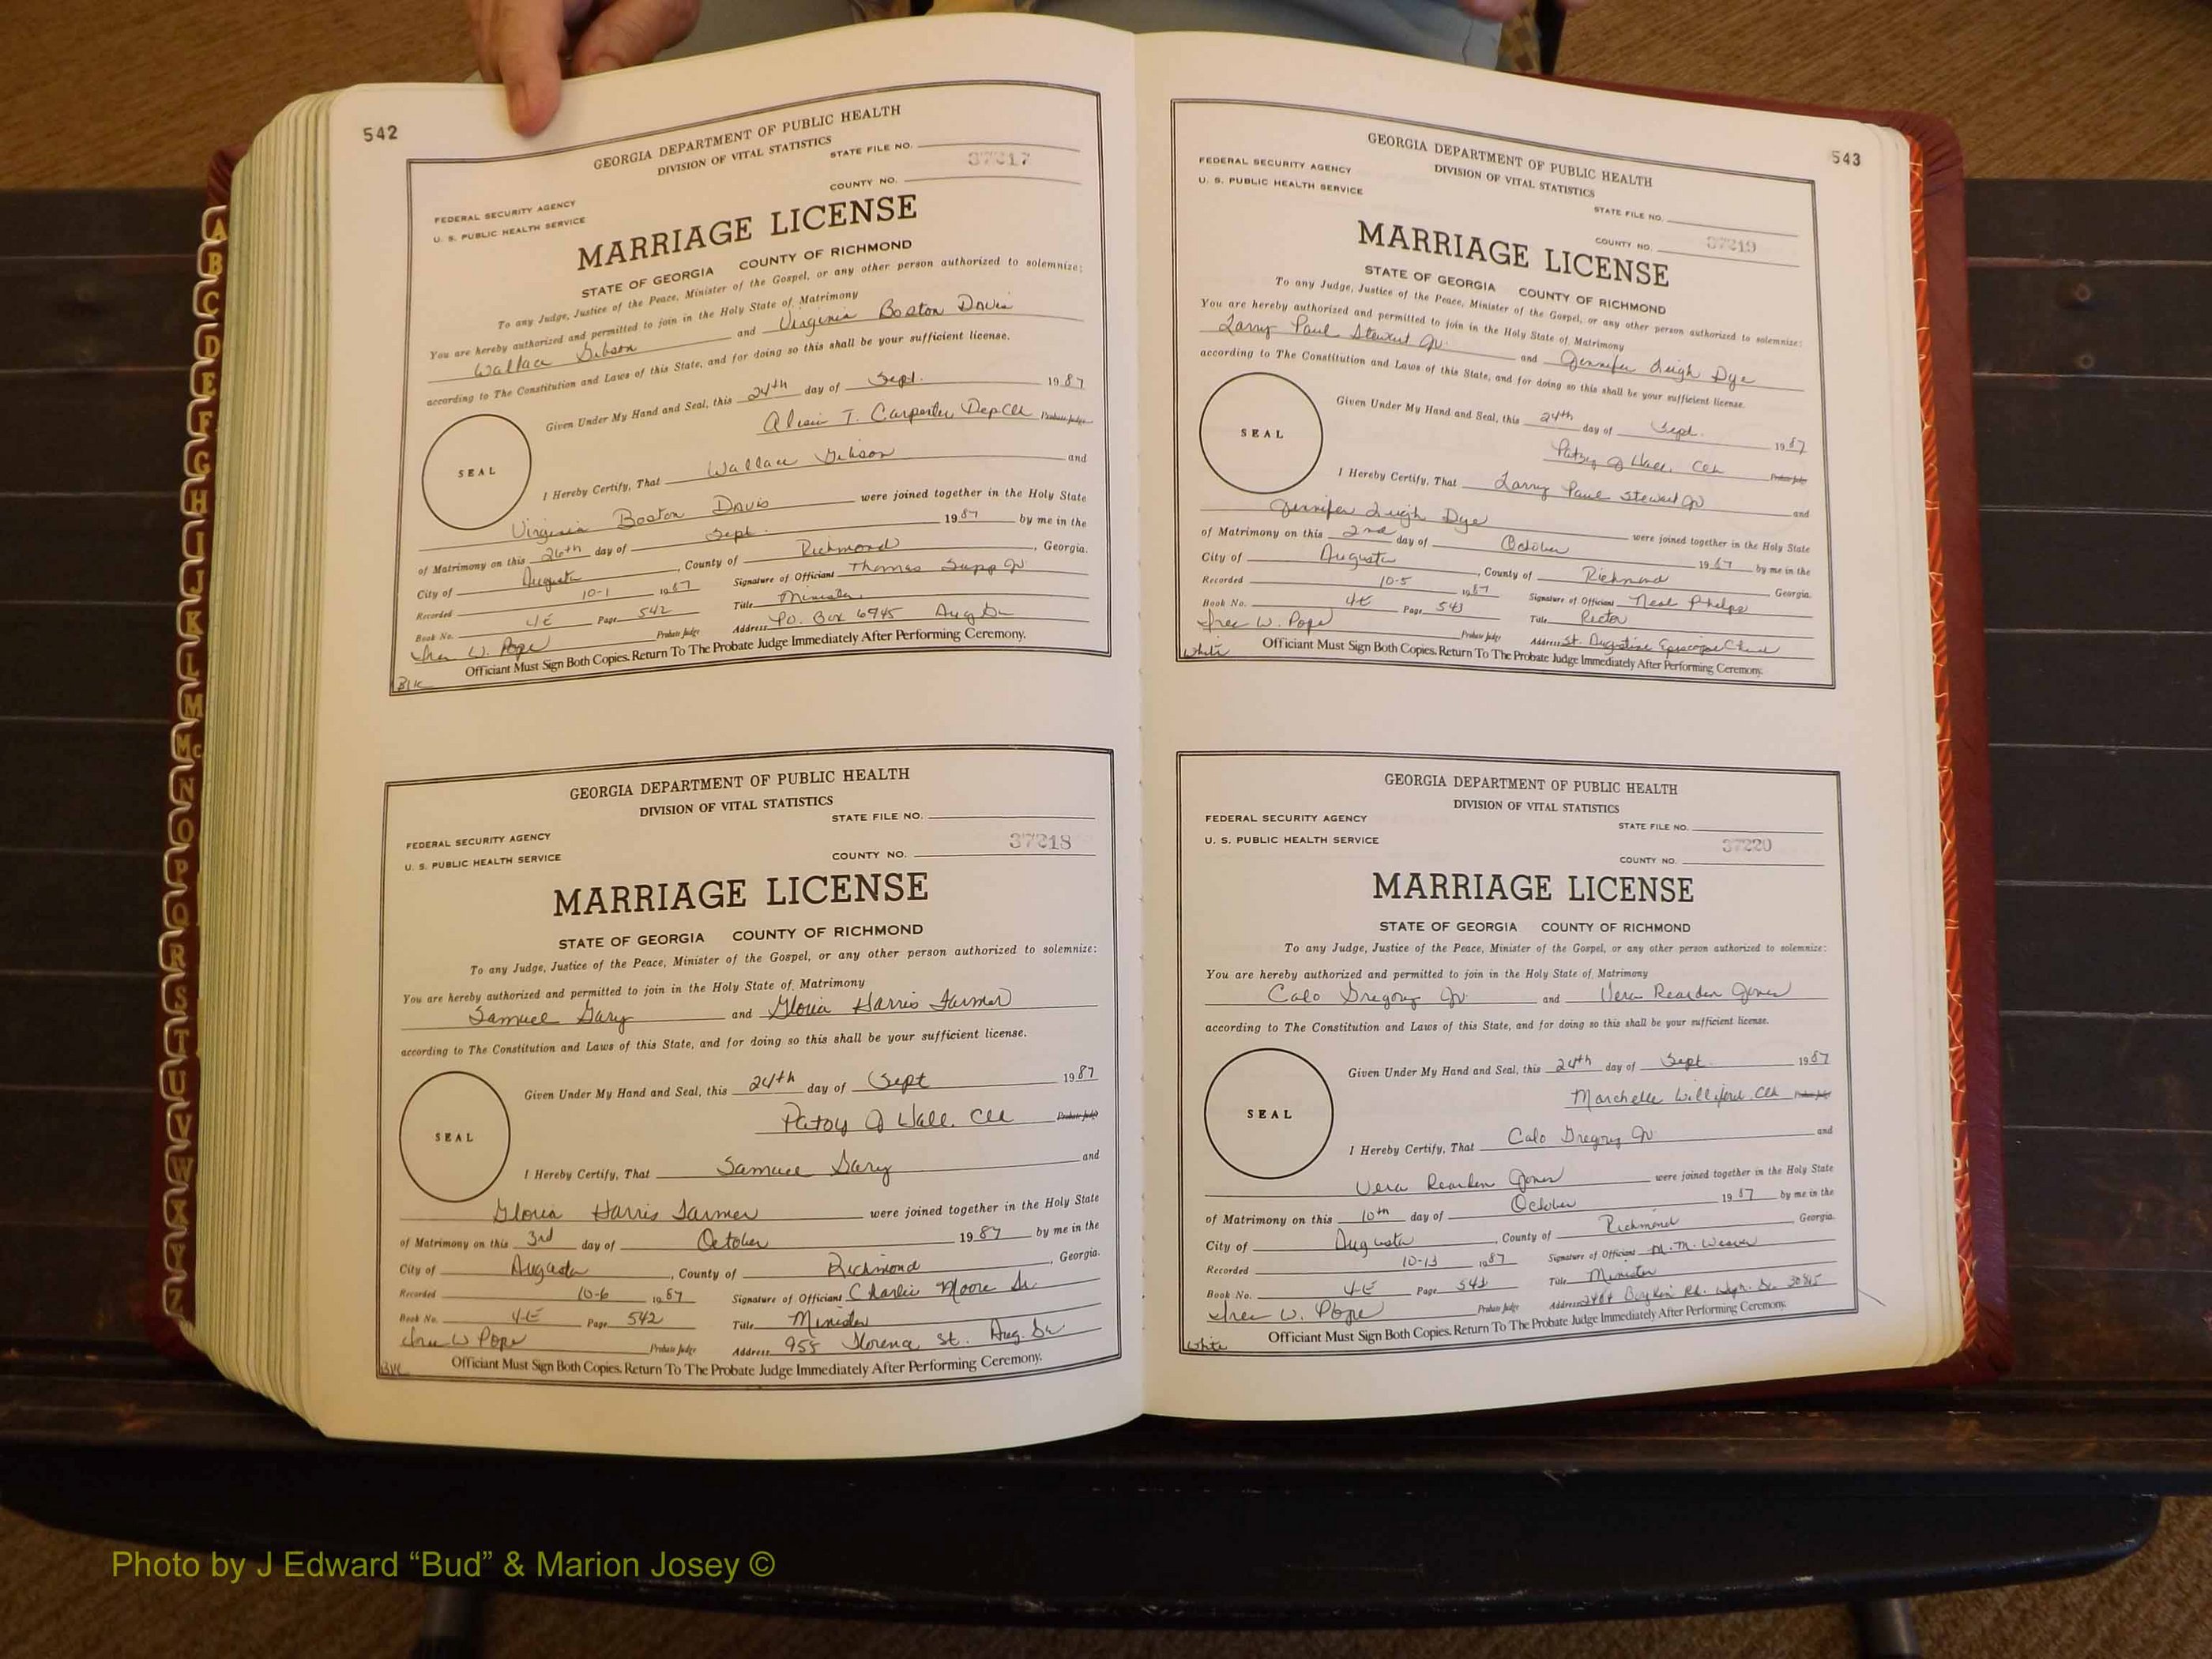 542
GEORGIA DEPARTMENT OF PUBLIC HEALTH
DIVISION OF VITAL STATISTICS
STATE FILE NO.
37217
COUNTY NO.
FEDERAL SECURITY AGENCY
U. S. PUBLIC HEALTH SERVICE
MARRIAGE LICENSE
STATE OF GEORGIA COUNTY OF RICHMOND
To any Judge, Justice of the Peace, Minister of the Gospel, or any other person authorized to solemnize:
You are hereby authorized and permitted to join in the Holy State of Matrimony
Wallace Gibson and Virginia Boston Davis
according to The Constitution and Laws of this State, and for doing so this shall be your sufficient license.
Given Under My Hand and Seal, this 24th day of Sept. 1987
T. Carpenter Dep Clk Probate Judge
SEAL
I Hereby Certify, That Wallace Gibson and
Virginia Boston Davis were joined together in the Holy State
of Matrimony on this 26th day of Sept. 1987 by me in the
City of Augusta, County of Richmond, Georgia.
Recorded 10-1 1987 Signature of Officiant Thomas Sapp Jr
Book No. 4E Page 542 Title Minister
Probate Judge Address P.O. Box 6745 Aug Ga
W. Pope
Officiant Must Sign Both Copies. Return To The Probate Judge Immediately After Performing Ceremony.
Blk
GEORGIA DEPARTMENT OF PUBLIC HEALTH
DIVISION OF VITAL STATISTICS
STATE FILE NO.
FEDERAL SECURITY AGENCY
U. S. PUBLIC HEALTH SERVICE
37218
COUNTY NO.
MARRIAGE LICENSE
STATE OF GEORGIA COUNTY OF RICHMOND
To any Judge, Justice of the Peace, Minister of the Gospel, or any other person authorized to solemnize:
You are hereby authorized and permitted to join in the Holy State of Matrimony
Samuel Gary and Gloria Harris Farmer
according to The Constitution and Laws of this State, and for doing so this shall be your sufficient license.
Given Under My Hand and Seal, this 24th day of Sept 1987
Patsy J Wall, Clk Probate Judge
SEAL
I Hereby Certify, That Samuel Gary and
Gloria Harris Farmer were joined together in the Holy State
of Matrimony on this 3rd day of October 1987 by me in the
City of Augusta, County of Richmond, Georgia.
Recorded 10-6 1987 Signature of Officiant Charlie Moore Sr.
Book No. 4-E Page 542 Title Minister
W Pope Probate Judge Address 958 Florence St. Aug. Ga
Officiant Must Sign Both Copies. Return To The Probate Judge Immediately After Performing Ceremony.
Blk
543
GEORGIA DEPARTMENT OF PUBLIC HEALTH
DIVISION OF VITAL STATISTICS
FEDERAL SECURITY AGENCY
U. S. PUBLIC HEALTH SERVICE
STATE FILE NO.
COUNTY NO. 37219
MARRIAGE LICENSE
STATE OF GEORGIA COUNTY OF RICHMOND
To any Judge, Justice of the Peace, Minister of the Gospel, or any other person authorized to solemnize:
You are hereby authorized and permitted to join in the Holy State of Matrimony
Larry Paul Stewart Jr. and Jennifer Leigh Dye
according to The Constitution and Laws of this State, and for doing so this shall be your sufficient license.
Given Under My Hand and Seal, this 24th day of Sept. 1987
Patsy J Wall, Clk Probate Judge
SEAL
I Hereby Certify, That Larry Paul Stewart Jr and
Jennifer Leigh Dye were joined together in the Holy State
of Matrimony on this 2nd day of October 1987 by me in the
City of Augusta, County of Richmond Georgia.
Recorded 10-5 1987 Signature of Officiant Neal Phelps
Book No. 4E Page 543 Title Rector
W. Pope Probate Judge Address St. Augustine Episcopal Church
Officiant Must Sign Both Copies. Return To The Probate Judge Immediately After Performing Ceremony.
White
GEORGIA DEPARTMENT OF PUBLIC HEALTH
DIVISION OF VITAL STATISTICS
FEDERAL SECURITY AGENCY
STATE FILE NO.
U. S. PUBLIC HEALTH SERVICE
37220
COUNTY NO.
MARRIAGE LICENSE
STATE OF GEORGIA COUNTY OF RICHMOND
To any Judge, Justice of the Peace, Minister of the Gospel, or any other person authorized to solemnize:
You are hereby authorized and permitted to join in the Holy State of Matrimony
Calo Gregory Jr. and Vera Rearden Jones
according to The Constitution and Laws of this State, and for doing so this shall be your sufficient license.
Given Under My Hand and Seal, this 24th day of Sept. 1987
Marchelle Williford, Clk Probate Judge
SEAL
I Hereby Certify, That Calo Gregory Jr. and
Vera Rearden Jones were joined together in the Holy State
of Matrimony on this 10th day of October 1987 by me in the
City of Augusta, County of Richmond Georgia.
Recorded 10-13 1987 Signature of Officiant M. M. Weaver
Book No. 4-E Page 543 Title Minister
W. Pope Probate Judge Address Rd. Heph. Ga. 30815
Officiant Must Sign Both Copies. Return To The Probate Judge Immediately After Performing Ceremony.
White
A
B
C
D
E
F
G
H
I
J
K
L
M
Mc
N
O
P
Q
R
S
T
U
V
W
X
Y
Z
Photo by J Edward “Bud” & Marion Josey ©